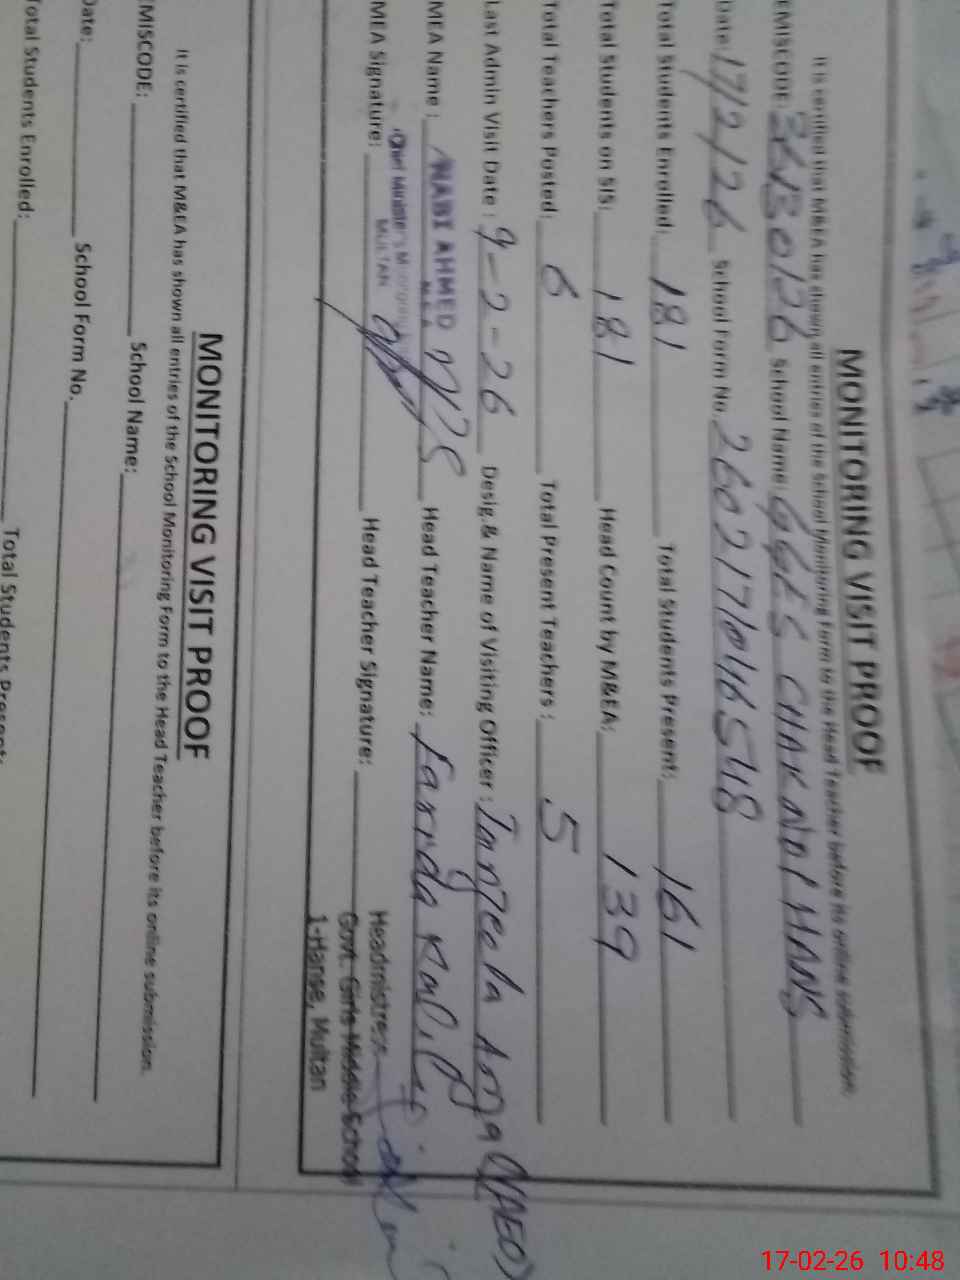 MONITORING VISIT PROOF
It is certified that M&EA has shown all entries of the School Monitoring Form to the Head Teacher before its online submission.
EMISCODE: 36130126 School Name: GGES CHAK NO 1 HANS
Date: 17/2/26 School Form No. 260217101165418
Total Students Enrolled: 181 Total Students Present: 161
Total Students on SIS: 181 Head Count by M&EA: 139
Total Teachers Posted: 6 Total Present Teachers: 5
Last Admin Visit Date: 9-2-26 Desig.& Name of Visiting Officer: (AEO)
MEA Name: NABI AHMED Head Teacher Name: Farida
Chief Minister's
MULTAN
MEA Signature: Head Teacher Signature:
Headmistress
Govt. Girls Middle School
1-Hanse, Multan
MONITORING VISIT PROOF
It is certified that M&EA has shown all entries of the School Monitoring Form to the Head Teacher before its online submission.
EMISCODE: School Name:
Date: School Form No.
Total Students Enrolled: Total Students Present:
17-02-26 10:48